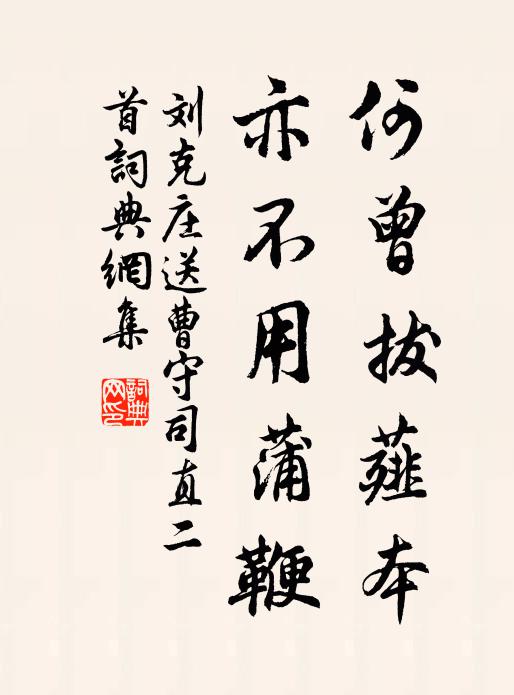 何曾拔薤本
亦不用蒲鞭
刘克庄送曹守司直二
首詞典網集
詞典网印